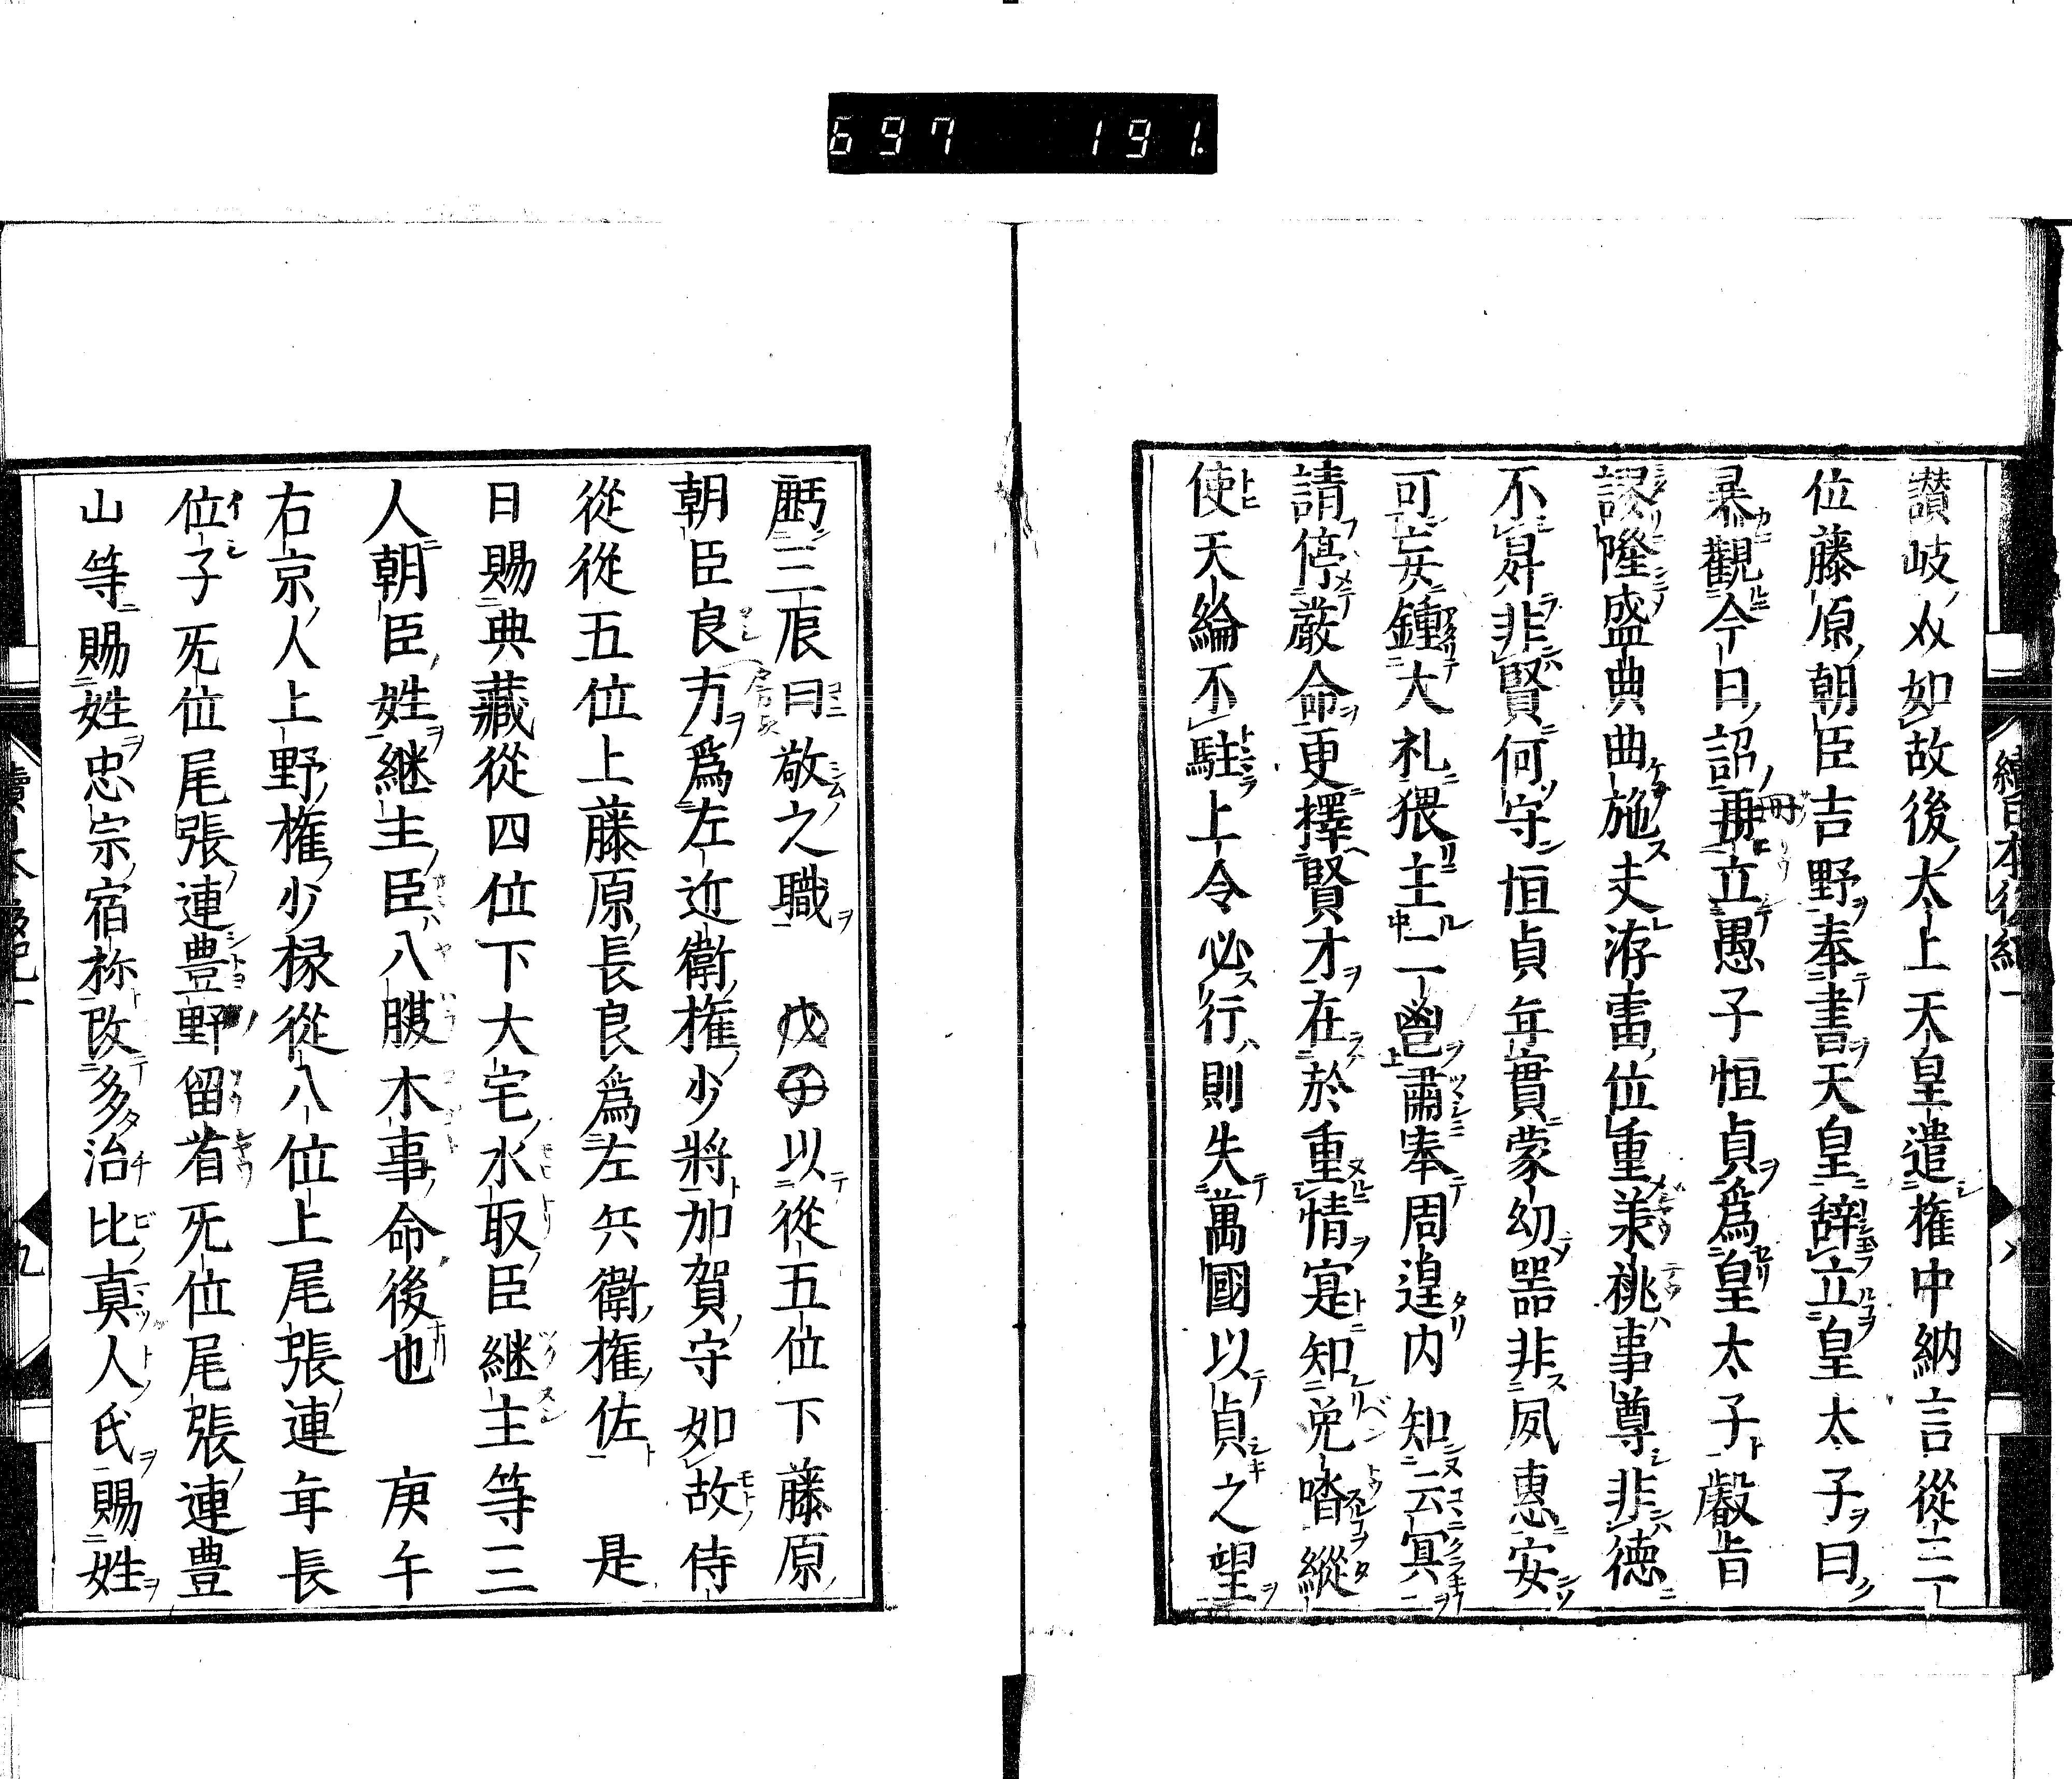 697 191
續日本後紀一
讃岐从如故後太上天皇遣権中納言從三
位藤原朝臣吉野奉書天皇辞立皇太子曰
暴觀今日詔再立愚子恒貞爲皇太子嚴旨
謬隆盛典曲施夫洊雷位重㒸祧事尊非德
不昇非賢何守恒貞年實蒙幼器非夙惠安
可妄鍾大礼猥主一鬯肅奉周遑内知云冥
請停嚴命更擇賢才在於重情寔知兇喈縱
使天綸不駐上令必行則失萬國以貞之望
虧三辰曰敬之職 戊子以從五位下藤原
朝臣良方爲左近衛権少將加賀守如故侍
從從五位上藤原長良爲左兵衛権佐 是
日賜典藏從四位下大宅水取臣継主等三
人朝臣姓継主臣八腹木事命後也 庚午
右京人上野権少掾從八位上尾張連年長
位子旡位尾張連豊野留省旡位尾張連豊
山等賜姓忠宗宿祢改多治比真人氏賜姓
九